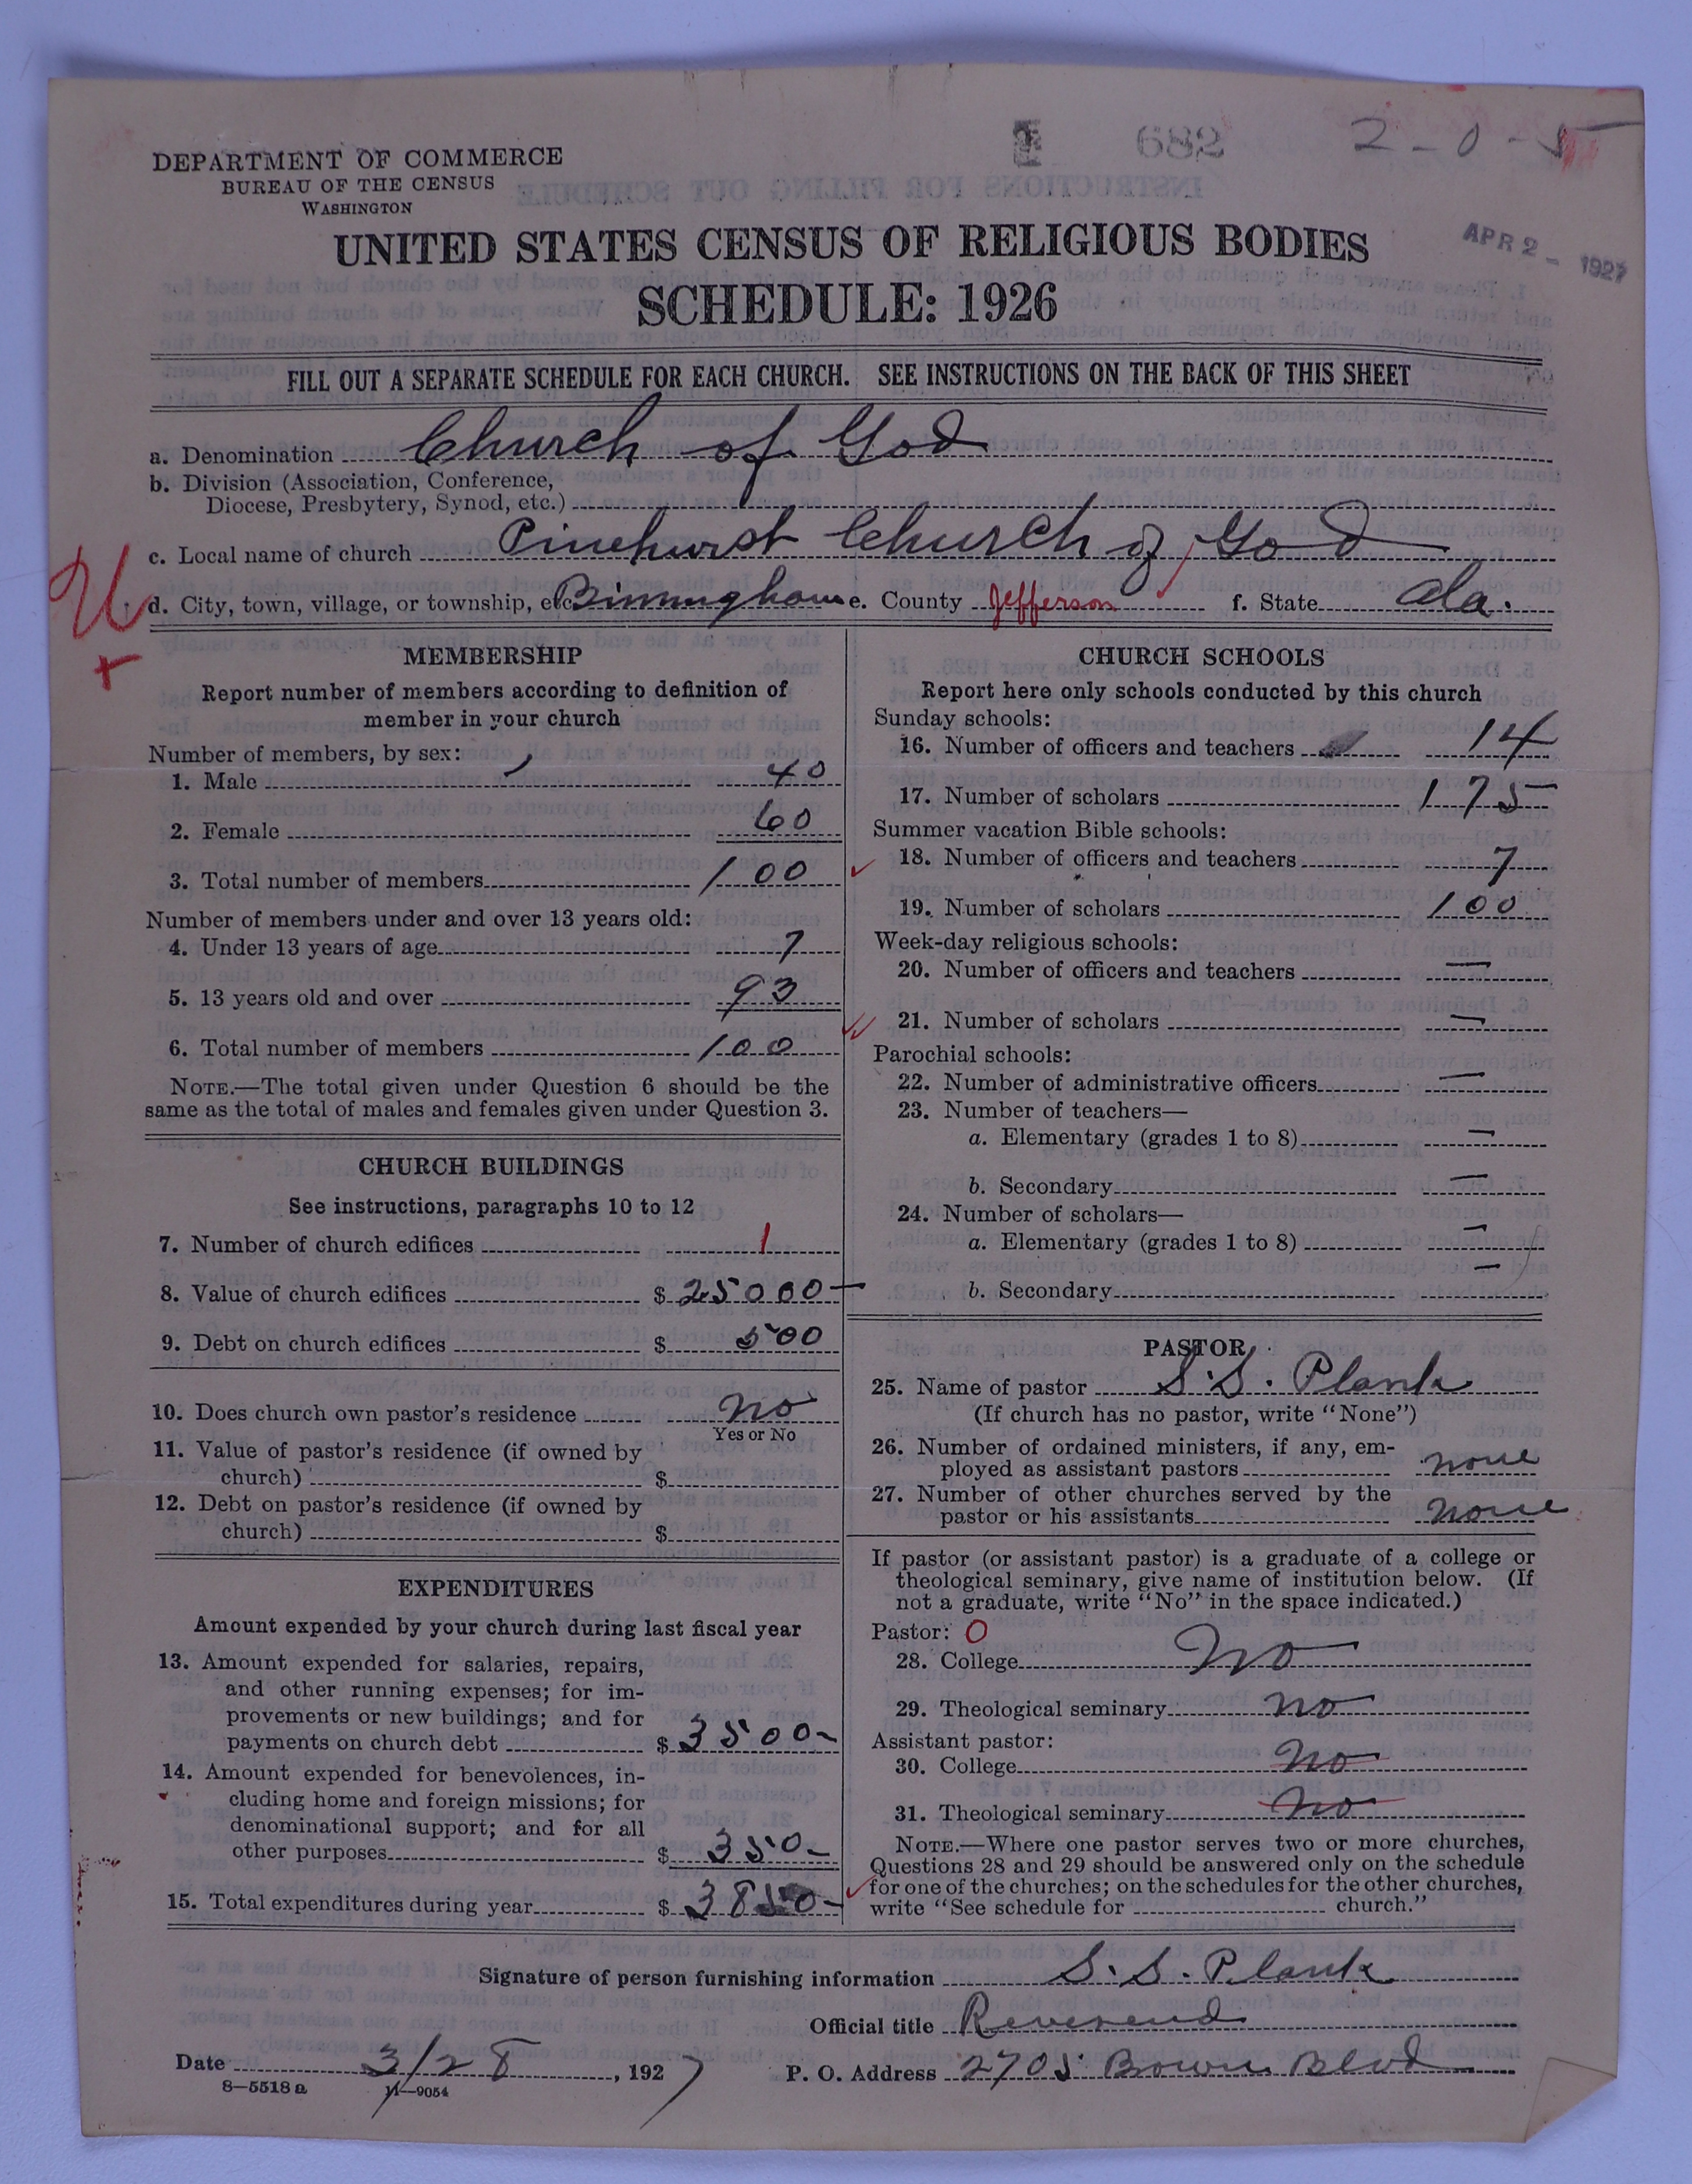 682
2-0-5
DEPARTMENT OF COMMERCE
BUREAU OF THE CENSUS
WASHINGTON
APR 2 - 1927
UNITED STATES CENSUS OF RELIGIOUS BODIES
SCHEDULE: 1926
FILL OUT A SEPARATE SCHEDULE FOR EACH CHURCH. SEE INSTRUCTIONS ON THE BACK OF THIS SHEET
a. Denomination Church of God
b. Division (Association, Conference,
Diocese, Presbytery, Synod, etc.)
c. Local name of church Pinehurst Church of God
U d. City, town, village, or township, etc Birmingham e. County Jefferson f. State Ala.
+
MEMBERSHIP
Report number of members according to definition of
member in your church
Number of members, by sex:
1. Male 40
2. Female 60
3. Total number of members 100
Number of members under and over 13 years old:
4. Under 13 years of age 7
5. 13 years old and over 93
6. Total number of members 100
NOTE.—The total given under Question 6 should be the
same as the total of males and females given under Question 3.
CHURCH BUILDINGS
See instructions, paragraphs 10 to 12
7. Number of church edifices 1
8. Value of church edifices $ 25000-
9. Debt on church edifices $ 500
10. Does church own pastor's residence no
Yes or No
11. Value of pastor's residence (if owned by
church) $
12. Debt on pastor's residence (if owned by
church) $
EXPENDITURES
Amount expended by your church during last fiscal year
13. Amount expended for salaries, repairs,
and other running expenses; for im-
provements or new buildings; and for
payments on church debt $ 3500-
14. Amount expended for benevolences, in-
cluding home and foreign missions; for
denominational support; and for all
other purposes $ 350-
15. Total expenditures during year $ 3850-
CHURCH SCHOOLS
Report here only schools conducted by this church
Sunday schools:
16. Number of officers and teachers 14
17. Number of scholars 175
Summer vacation Bible schools:
18. Number of officers and teachers 7
19. Number of scholars 100
Week-day religious schools:
20. Number of officers and teachers —
21. Number of scholars —
Parochial schools:
22. Number of administrative officers —
23. Number of teachers—
a. Elementary (grades 1 to 8) —
b. Secondary —
24. Number of scholars—
a. Elementary (grades 1 to 8) —
b. Secondary —
PASTOR
25. Name of pastor S. S. Plank
(If church has no pastor, write "None")
26. Number of ordained ministers, if any, em-
ployed as assistant pastors none
27. Number of other churches served by the
pastor or his assistants none
If pastor (or assistant pastor) is a graduate of a college or
theological seminary, give name of institution below. (If
not a graduate, write "No" in the space indicated.)
Pastor: O
28. College No
29. Theological seminary no
Assistant pastor:
30. College No
31. Theological seminary No
NOTE.—Where one pastor serves two or more churches,
Questions 28 and 29 should be answered only on the schedule
for one of the churches; on the schedules for the other churches,
write "See schedule for church."
Signature of person furnishing information S. S. Plank
Official title Reverend
Date 3/28, 1927 P. O. Address 2705 Blvd
8—5518 a 11—9054